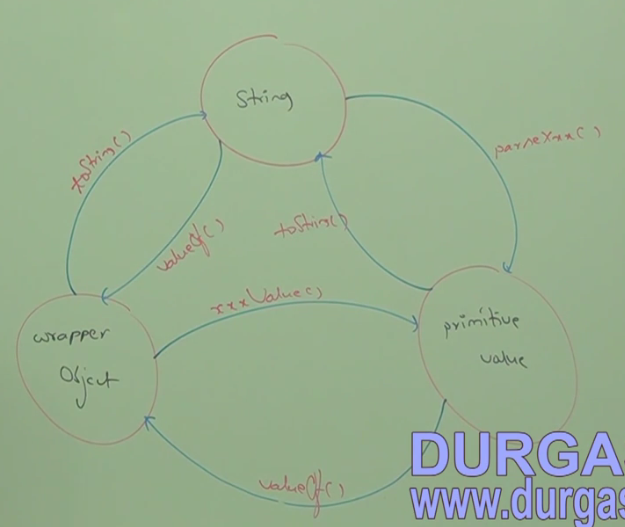 String
parseXxx()
toString()
valueOf()
toString()
xxxValue()
wrapper
Object
primitive
value
valueOf()
DURGA
www.durgas